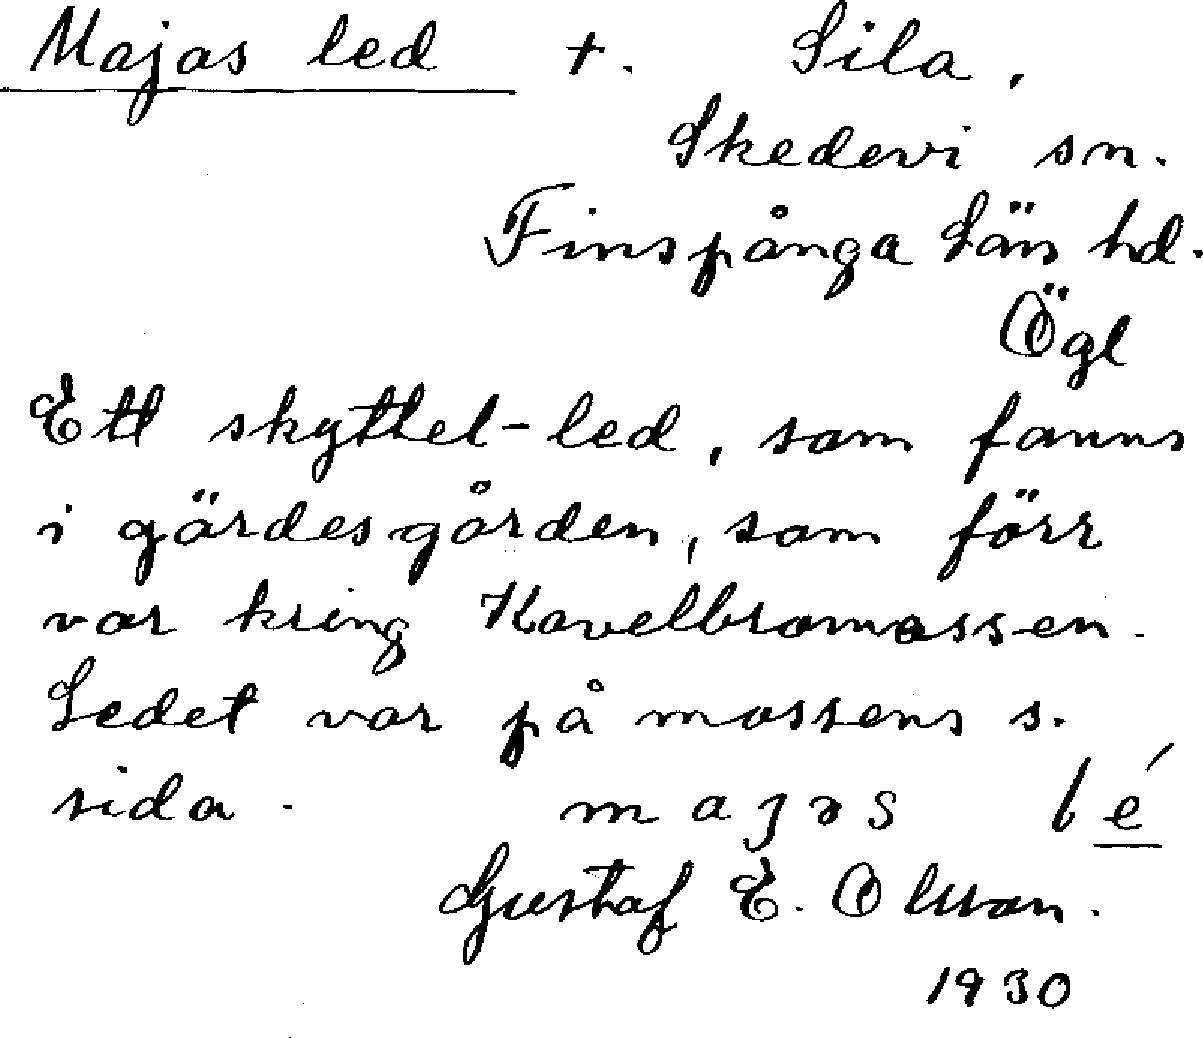 Majas led +. Sila,
Skedevi sn.
Finspånga Läns hd.
Ögl
Ett skyttel-led, som fanns
i gärdesgården, som förr
var kring Kavelbromossen.
Ledet var på mossens s.
sida.
majas lé
Gustaf E. Olsson.
1930